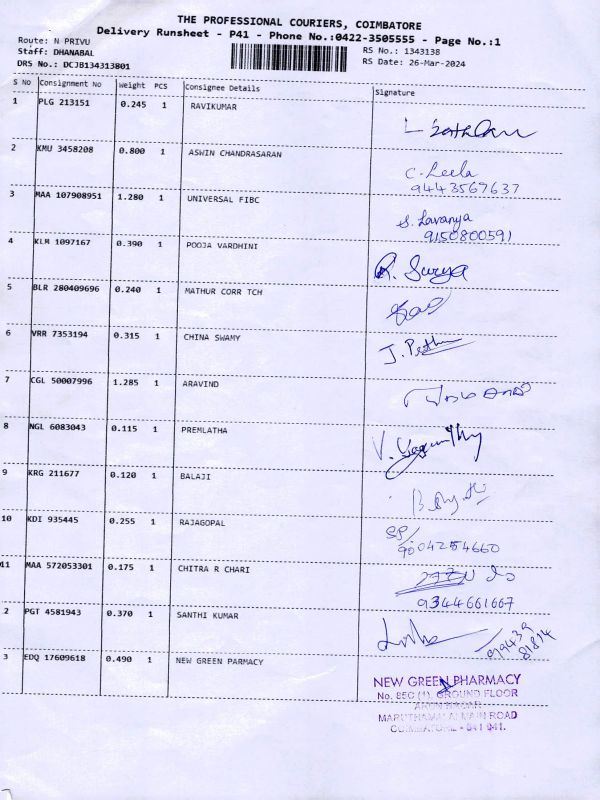 THE PROFESSIONAL COURIERS, COIMBATORE
Delivery Runsheet - P41 - Phone No.:0422-3505555 - Page No.:1
Route: N PRIVU
Staff: DHANABAL
DRS No.: DCJB134313801
RS No.: 1343138
RS Date: 26-Mar-2024
S No Consignment No Weight PCS Consignee Details Signature
1 PLG 213151 0.245 1 RAVIKUMAR
2 KMU 3458208 0.800 1 ASWIN CHANDRASARAN
C. Leela
9443567637
3 MAA 107908951 1.280 1 UNIVERSAL FIBC
S. Lavanya
9150800591
4 KLM 1097167 0.390 1 POOJA VARDHINI
R. Surya
5 BLR 280409696 0.240 1 MATHUR CORR TCH
6 VRR 7353194 0.315 1 CHINA SWAMY
7 CGL 50007996 1.285 1 ARAVIND
8 NGL 6083043 0.115 1 PREMLATHA
9 KRG 211677 0.120 1 BALAJI
10 KDI 935445 0.255 1 RAJAGOPAL
9004254660
11 MAA 572053301 0.175 1 CHITRA R CHARI
9344661667
2 PGT 4581943 0.370 1 SANTHI KUMAR
3 EDQ 17609618 0.490 1 NEW GREEN PARMACY
NEW GREEN PHARMACY
No. 85C (1), GROUND FLOOR
MARUTHAMALAI MAIN ROAD
COIMBATORE - 641 041.